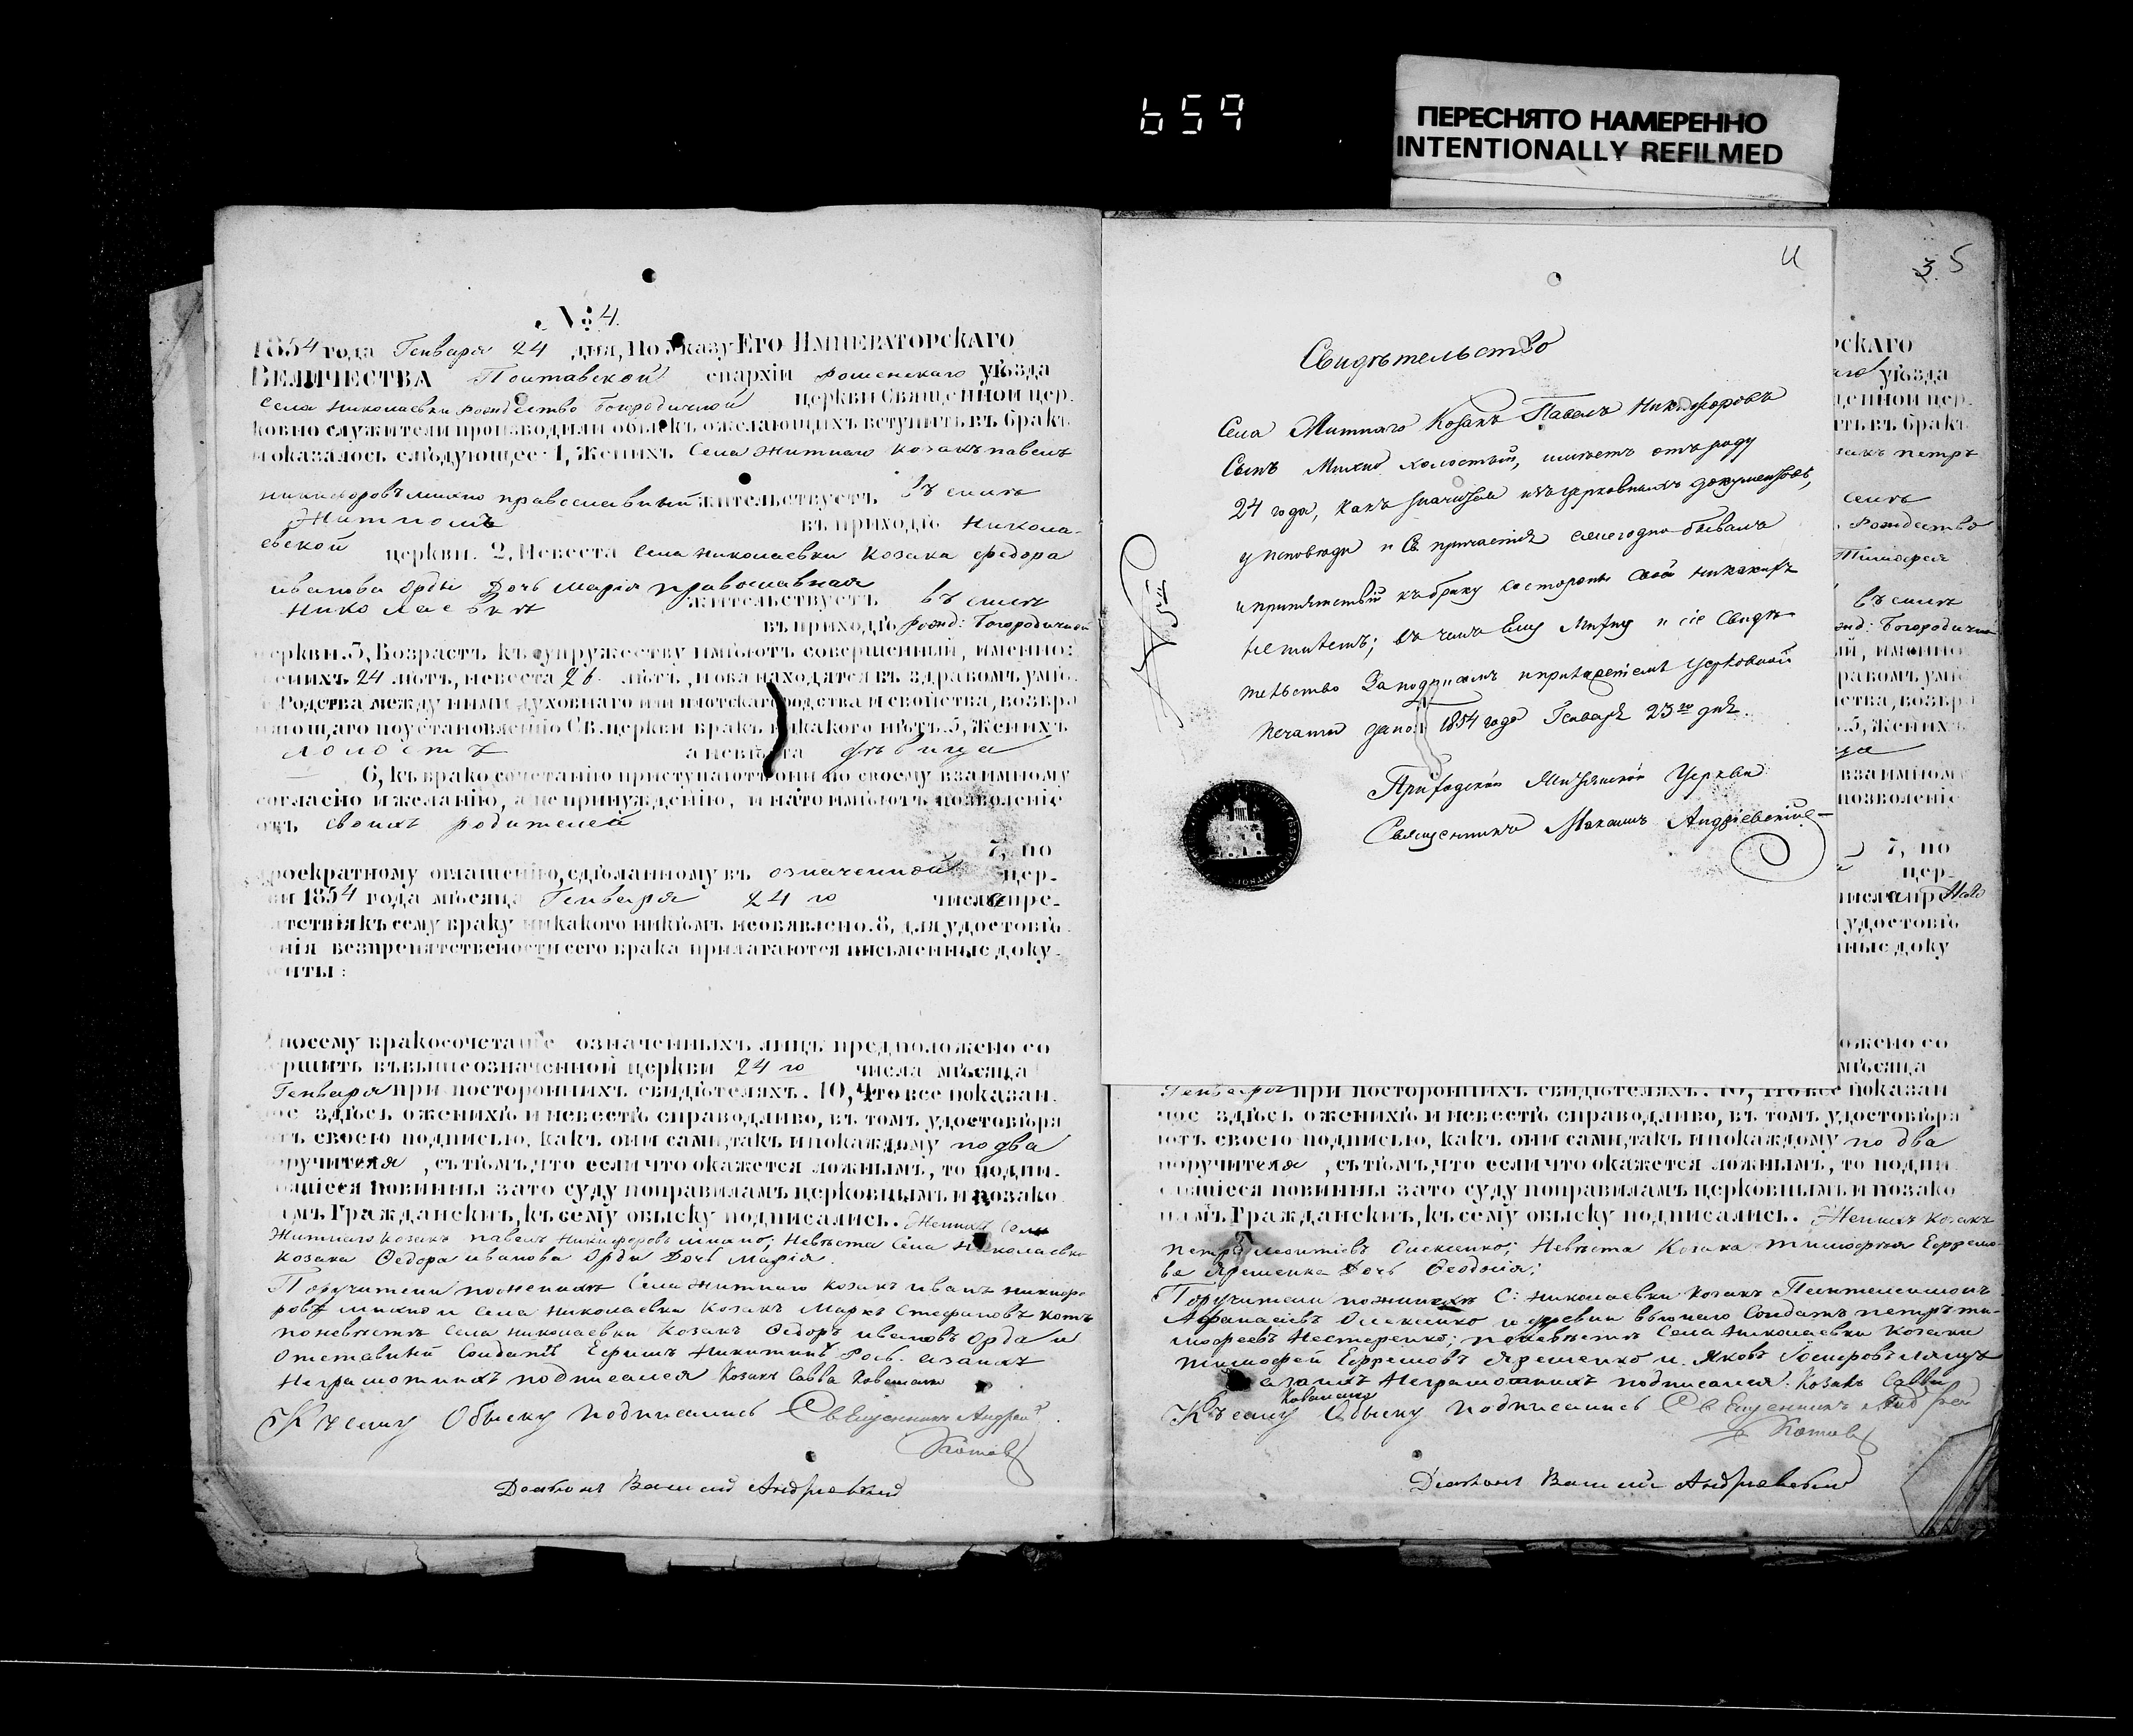 659
ПЕРЕСНЯТО НАМЕРЕННО
INTENTIONALLY REFILMED
№ 4.
1854 года Генваря 24 дня, По Указу Его Императорскаго
Величества Полтавской епархіи роменскаго уѣзда
Села Николаевки рождество Богородичной церкви Священной цер-
ковно служители производили обыскъ о желающихъ вступить въ бракъ
и оказалось слѣдующее: 1, Женихъ Села Житнаго козакъ павелъ
никифоровъ михно православный жительствуетъ въ селѣ
Житномъ въ приходѣ Никола-
евской церкви. 2, Невеста Села Николаевки Козака федора
иванова Орды Дочь марія православная
жительствуетъ въ селѣ
Николаевкѣ
въ приходѣ рожд: Богородичной
церкви. 3, Возрастъ къ супружеству имѣютъ совершенный, именно:
женихъ 24 лѣтъ, невеста 26 лѣтъ, и оба находятся въ здравомъ умѣ.
Родства между ними духовнаго или плотскаго родства и свойства, возбра
няющаго по установленію Св. церкви бракъ никакого нѣтъ. 5, Женихъ
холостъ а невѣста дѣвица
6, къ бракосочетанію приступаютъ они по своему взаимному
согласію и желанію, а не принужденію, и на то имѣютъ позволеніе
отъ своихъ родителей
7, по
троекратному оглашенію, сдѣланному въ означенной цер-
кви 1854 года мѣсяца Генваря 24 го числа пре-
пятствія къ сему браку никакого никѣмъ необявлено. 8, для удостовѣ-
ренія безпрепятствености сего брака прилагаются письменные доку-
менты:
посему бракосочетаніе означенныхъ лицъ предположено со
вершить въ вышеозначенной церкви 24 го числа мѣсяца
Генваря при постороннихъ свидѣтеляхъ. 10, Что все показан
ное здѣсь о женихѣ и невестѣ справодливо, въ томъ удостовѣря
ютъ своею подписью, какъ они сами, такъ и по каждому по два
поручителя, съ тѣмъ, что если что окажется ложнымъ, то подпи-
савшіеся повинны за то суду по правиламъ церковнымъ и по зако
намъ Гражданскимъ, къ сему обыску подписались. Женихъ Села
Житнаго козакъ павелъ Никифоровъ михно; Невѣста Села Николаевки
козака Федора иванова Орды Дочь Марія.
Поручители по женихѣ Села Житнаго козакъ иванъ никифо-
ровъ михно и села Николаевки Козакъ Марко Стефановъ котъ
по невѣстѣ Села Николаевки Козакъ Федоръ ивановъ Орда и
отставный Солдатъ Ефимъ Никитинъ а за ихъ
Неграмотныхъ подписался Козакъ Савва
Къ сему Обыску подписались Священникъ Андрей
Котовъ
Діаконъ Василій Андріевскій
4
Свидѣтельство
Села Житнаго Козакъ Павелъ Никифоровъ
Сынъ Михно холостый, имѣетъ отъ роду
24 года, какъ значится изъ церковныхъ документовъ,
у исповѣди и Св. причастія ежегодно бывалъ
и препятствій къ браку со стороны своей никакихъ
не имѣетъ; въ чемъ Ему Михну и сіе Свидѣ-
тельство За подписомъ и приложеніемъ Церковной
печати данъ 1854 года Генваря 23 го дня.
Приходской Житянской Церкви
Священникъ Андріевскій
3. 5
рскаго
уѣзда
щенной цер-
ить въ бракъ
закъ петръ
селѣ
Рождество
Тимофея
въ селѣ
рожд: Богородично
ій, именно
равомъ умѣ
ства, возбра
5, Женихъ
взаимному
позволеніе
7, по
цер-
числа пр
удостовѣ
ные доку
ожено со
мѣсяца
Генваря при постороннихъ свидѣтеляхъ. 10, Что все показан
ное здѣсь о женихѣ и невестѣ справодливо, въ томъ удостовѣря
ютъ своею подписью, какъ они сами, такъ и по каждому по два
поручителя, съ тѣмъ, что если что окажется ложнымъ, то подпи
савшіеся повинны за то суду по правиламъ церковнымъ и по зако
намъ Гражданскимъ, къ сему обыску подписались. Женихъ Козакъ
петръ Олексенко; Невѣста Козака тимофея Ефремо-
ва Яременка Дочь Феодосія;
Поручители по женихѣ С: Николаевки Козакъ Пантелеимонъ
Афанасіевъ Олексенко и Солдатъ петръ ти-
мофеевъ Нестеренко; по невѣстѣ Села Николаевки Козаки
тимофей Ефремовъ Яременко и Яковъ
а за ихъ Неграмотныхъ подписался Козакъ Савва
Къ сему Обыску подписались Священникъ Андрей
Котовъ
Діаконъ Василій Андріевскій